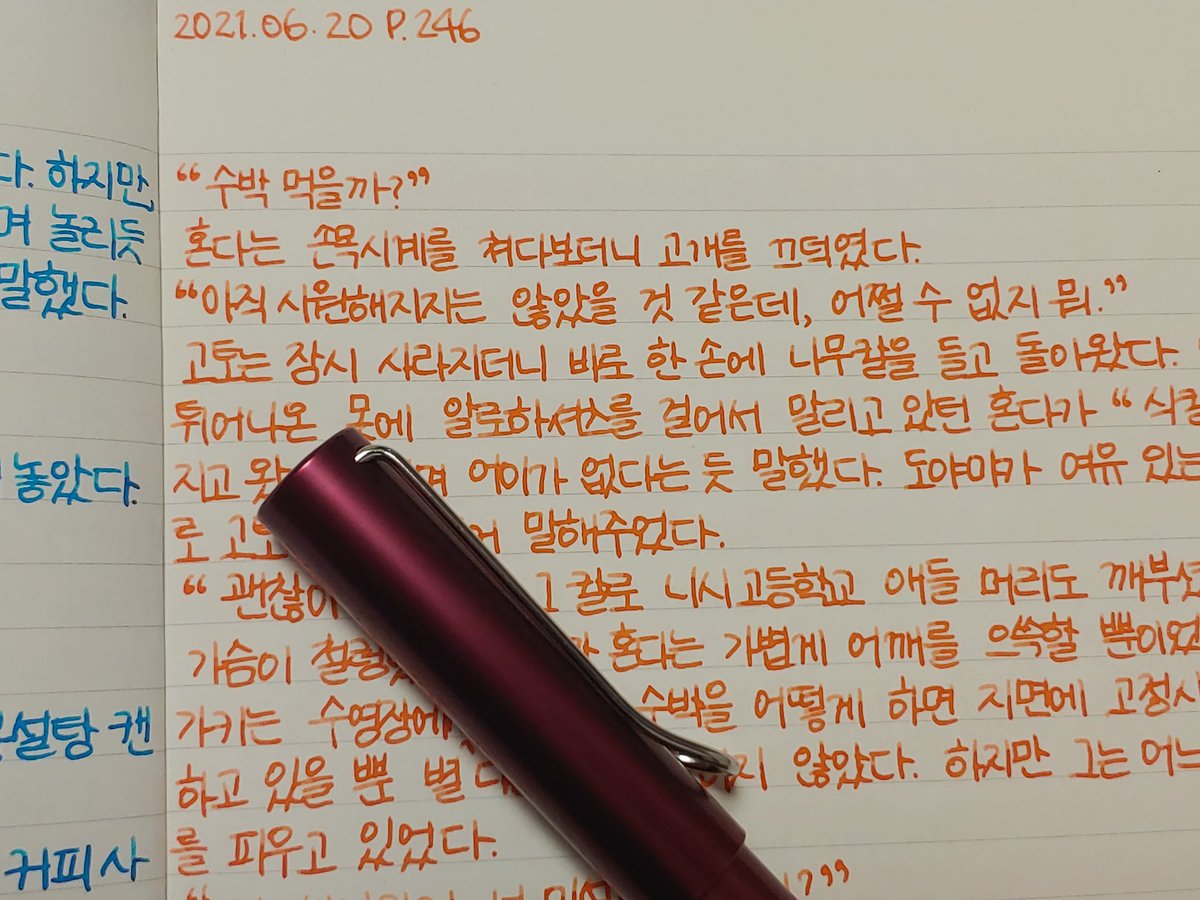 2021.06.20 P.246
다. 하지만
며 놀리듯
말했다.
놓았다.
설탕 캔
커피 사
“수박 먹을까?”
혼다는 손목시계를 쳐다보더니 고개를 끄덕였다.
“아직 시원해지지는 않았을 것 같은데, 어쩔 수 없지 뭐.”
고토는 잠시 사라지더니 바로 한 손에 나무칼을 들고 돌아왔다.
튀어나온 못에 알로하셔츠를 걸어서 말리고 있던 혼다가 “식칼
지고 어이가 없다는 듯 말했다. 도야마가 여유 있는
로 말해주었다.
“괜찮아 그 칼로 니시고등학교 애들 머리도 깨부쉈
가슴이 철렁 혼다는 가볍게 어깨를 으쓱할 뿐이었
가키는 수영장에 수박을 어떻게 하면 지면에 고정시
하고 있을 뿐 별 다 지 않았다. 하지만 그는 어느
를 피우고 있었다.